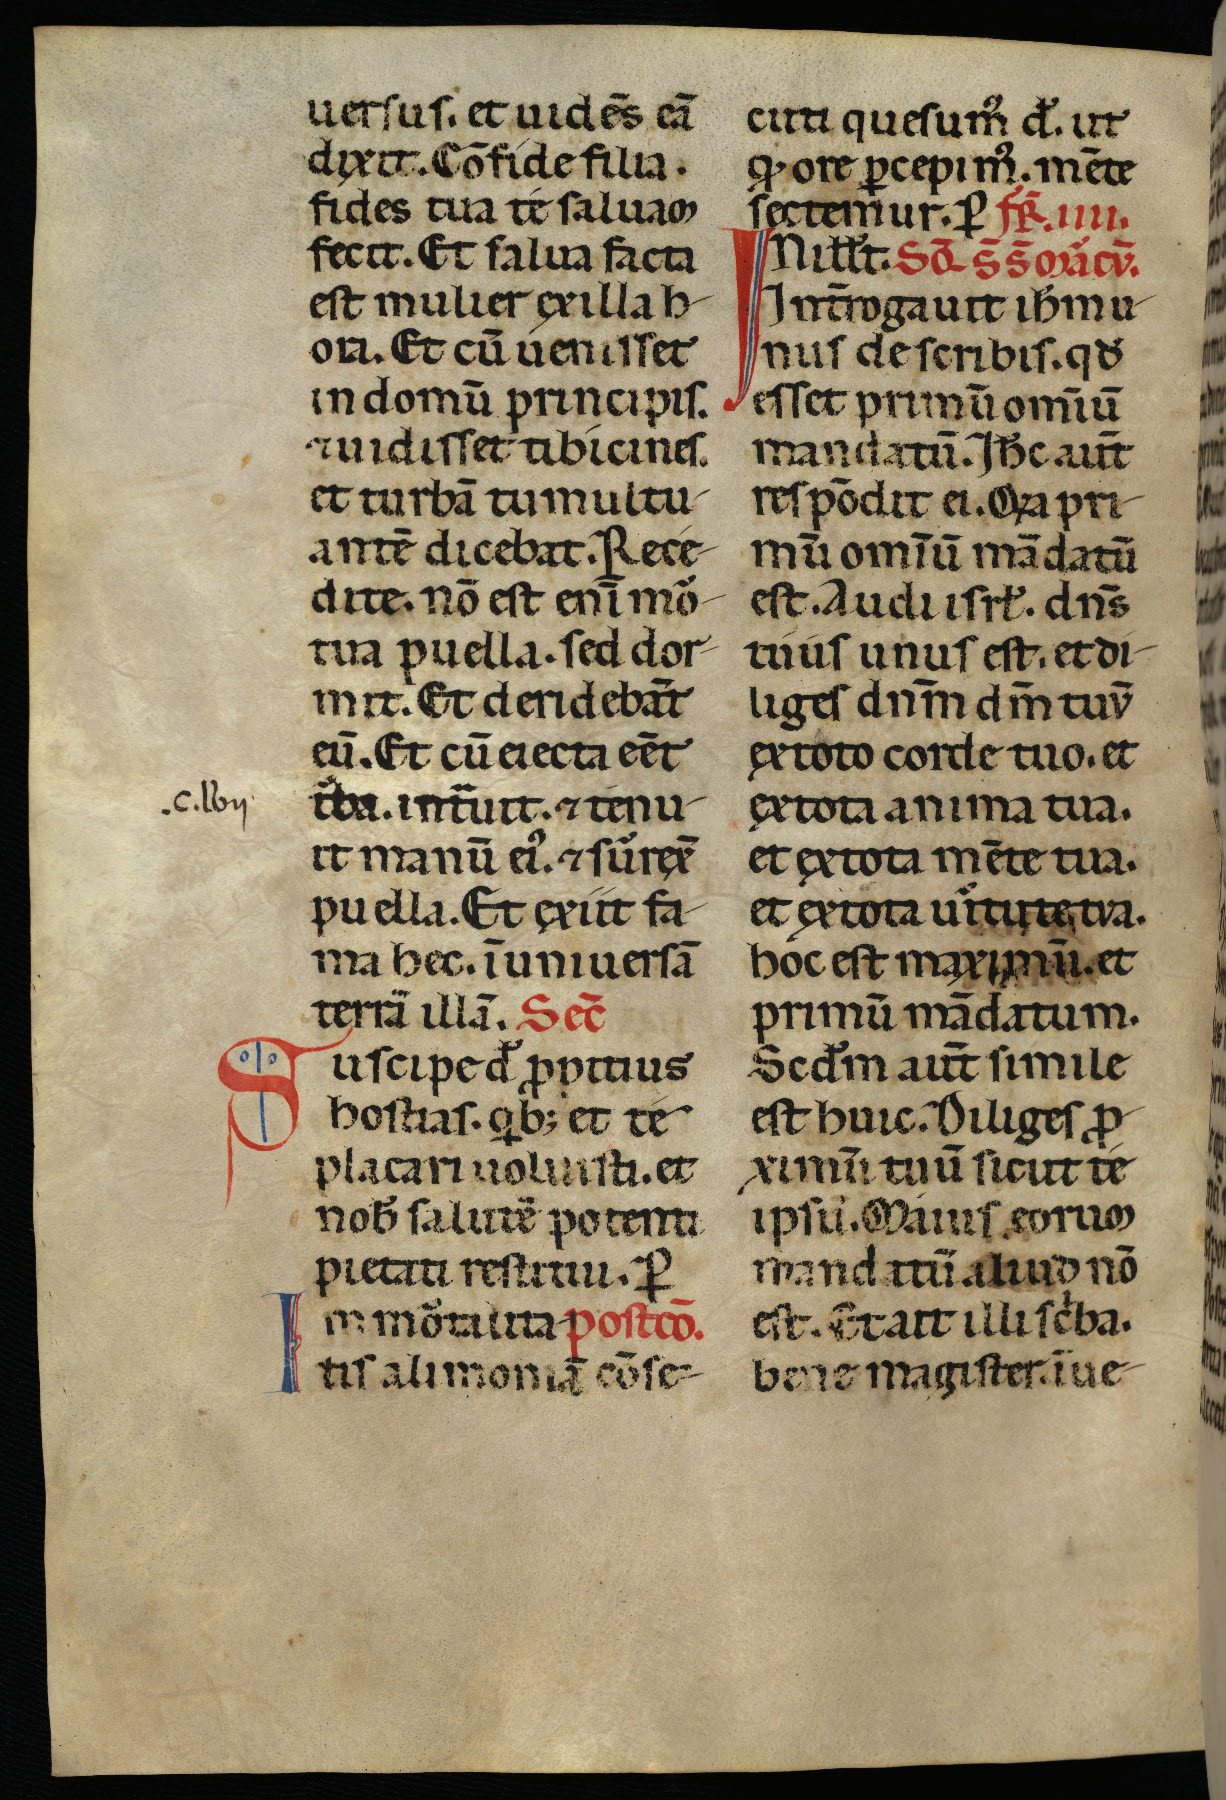 uersus. et uidēs eā
dixit. Cōfide filia.
fides tua te saluam
fecit. Et salua facta
est mulier ex illa h-
ora. Et cū uenisset
in domū principis.
⁊ uidisset tibicines.
et turbā tumultu-
antē dicebat. Rece-
dite. nō est enī mor-
tua puella. sed dor-
mit. Et deridebāt
eū. Et cū eiecta eēt
tͬba. intͣuit. ⁊ tenu-
it manū eiꝰ. ⁊ surrex̄
puella. Et exiit fa-
ma hec. ī uniuersā
terrā illā. Sec̄
.c. lvij
Suscipe dś ꝓpitius
hostias. qͥbꝫ et te
placari uoluisti. et
nob̄ salutē potenti
pietati restitui. ꝑ
Inmortalita postcō.
tis alimoniā cōse-
cuti quesumꝰ dś. ut
qͦ ore ꝑcepimꝰ. mēte
sectemur. ꝑ fr̄. iiii.
IN illo t̄. Sd̄ s̄s̄ marcū.
Int̄rogauit ih̄m u-
nus de scribis. qd̄
esset primū omīū
mandatū. Ih̄c aut̄
respōdit ei. Quia pri-
mū omīū mādatū
est. Audi isrl̄. dn̄s
tuus unus est. et di-
liges dn̄m dm̄ tuū
ex toto corde tuo. et
ex tota anima tua.
et ex tota mēte tua.
et ex tota uirtute tua.
hoc est maximū. et
primū mādatum.
Scd̄m aut̄ simile
est huic. Diliges ꝓ-
ximū tuū sicut te
ipsū. Maius eorum
mandatū aliud nō
est. Et ait illi scͥba.
bene magister. ī ue-